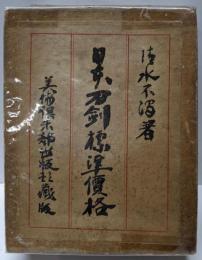 清水不濁著
日本刀剣標準價格
美術倶楽部出版部蔵版